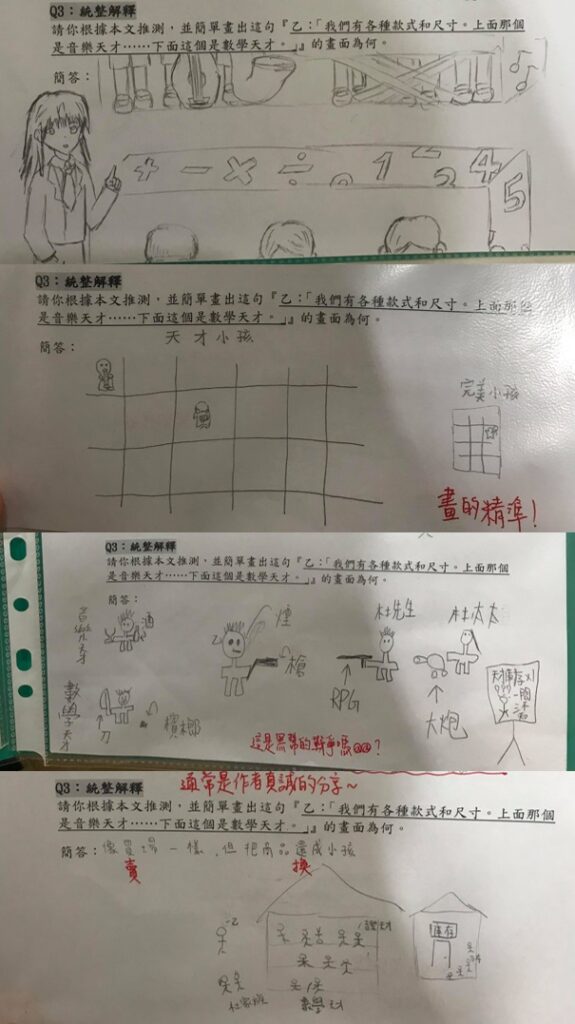 Q3：統整解釋
請你根據本文推測，並簡單畫出這句『乙：「我們有各種款式和尺寸。上面那個
是音樂天才……下面這個是數學天才。」』的畫面為何。
簡答：
+ - × ÷ 1 2 4 5
Q3：統整解釋
請你根據本文推測，並簡單畫出這句『乙：「我們有各種款式和尺寸。上面那個
是音樂天才……下面這個是數學天才。」』的畫面為何。
簡答：
天才小孩
完美小孩
畫的精準！
Q3：統整解釋
請你根據本文推測，並簡單畫出這句『乙：「我們有各種款式和尺寸。上面那個
是音樂天才……下面這個是數學天才。」』的畫面為何。
簡答：
音樂天才
酒
乙
煙
槍
杜先生
杜太太
RPG
大炮
數學天才
刀
檳榔
這是黑幫的戰爭嗎？
通常是作者真誠的分享～
Q3：統整解釋
請你根據本文推測，並簡單畫出這句『乙：「我們有各種款式和尺寸。上面那個
是音樂天才……下面這個是數學天才。」』的畫面為何。
簡答：像買場一樣，但把商品還成小孩
賣
換
乙
庫存
數學天才